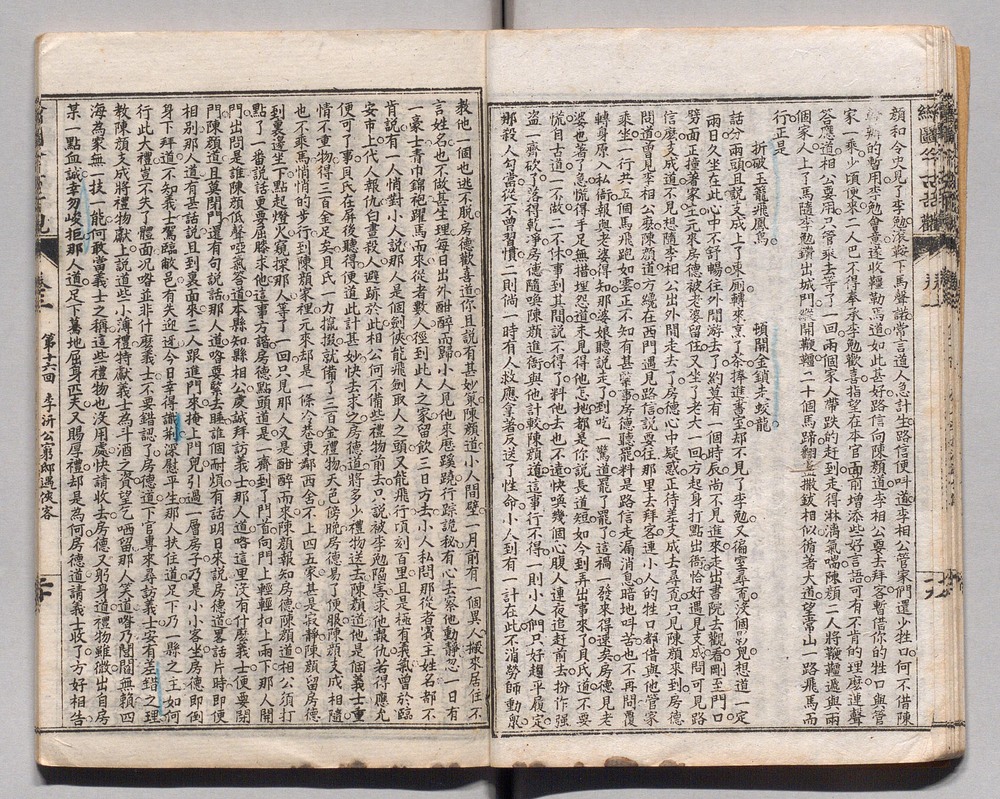 顏和令史見了李勉滾鞍下馬聲諾當言道人急計生路信便叫道李相公管家們還少牲口何不借陳
幹辦的暫用李勉會意遂收韁勒馬道如此甚好路信向陳顏道李相公要去拜客暫借你的牲口與管
家一乘少頃便來二人巴不得奉承李勉歡喜指望在本官面前增添些好言語可有不肯的理麼連聲
答應道相公要用只管乘去等了一回兩個家人帶跌的趕到走得淋漓氣喘陳顏二人將鞭韁遞與兩
個家人上了馬隨李勉趲出城門縱開鞭韁二十個馬蹄翻盞撒鈸相似循者大道望常山一路飛馬而
行正是
折破玉籠飛鳳鳥　頓開金鎖走蛟龍
話分兩頭且說支成上了東廁轉來烹了茶捧進書室却不見了李勉又徧室尋覓沒個影兒想道一定
兩日久坐在此心中不舒暢往外閒游去了約莫有一個時辰尚不見進來走出書院去觀看剛至門口
劈面正撞著家主元來房德被老婆留住又坐了老大一回方起身打點出衙恰好遇見支成問可見路
信麼支成道不見想隨李相公出外閒走去了房德心中疑慮正待差支成去尋覓只見陳顏來到房德
問道曾見李相公麼陳顏道方纔在西門遇見路信說要往那里去拜客連小人的牲口都借與他管家
乘坐一行共五個馬飛跑如雲正不知有甚緊事房德聽罷料是路信走漏消息暗地叫苦也不再問覆
轉身原入私衙報與老婆得知那婆娘聽說走了到吃一驚道罷了罷了這禍一發來得速矣房德見老
婆也著了急慌得手足無措埋怨道未見得他怎地都是你說長道短如今到弄出事來了貝氏道不要
慌自古道一不做二不休事到其間說不得了料他去也不遠快喚幾個心腹人連夜追趕前去扮作強
盜一齊砍了落得乾淨房德隨喚陳顏進衙與他計較陳顏道這事行不得一則小人們只好趨平履定
那殺人勾當從不曾習慣二則倘一時有人救應拿著反送了性命小人到有一計在此不消勞師動衆
教他一個也逃不脫房德歡喜道你且說有甚妙策陳顏道小人間壁一月前有一個異人搬來居住不
言姓名也不做甚生理每日出外酣醉而歸小人見他來歷蹊蹺行踪詭秘有心去察他動靜忽一日有
一豪士青巾錦袍躍馬而來從者數人徑到此人之家留飲三日方去小人私問那從者賓主姓名都不
肯說有一人悄對小人說那人是個劍俠能飛劍取人之頭又能飛行頃刻百里且是極有義氣曾於長
安市上代人報仇白晝殺人避跡於此相公何不備些禮物前去只說被李勉陷害求他報仇若得應允
便可了事貝氏在屏後聽得便道此計甚妙快去求之房德道將多少禮物送去陳顏道他是個義士重
情不重物得三百金足矣貝氏一力攛掇就備了三百金禮物天色傍晚房德易了便服陳顏支成相隨
也不乘馬悄悄的步行到陳顏家裡元來却是一條冷巷東鄰西舍不上四五家甚是寂靜陳顏留房德
到裏邊坐下點起燈火窺探那人等了一回只見那人又是酣醉而來陳顏報知房德陳顏道相公須打
點了一番說話更要屈膝求他這事方諧房德點頭道是一齊到了門首向門上輕輕扣上兩下那人開
門出問是誰陳顏低聲啞氣答道本縣知縣相公虔誠拜訪義士那人道咯這里沒有什麼義士便要關
門陳顏道且莫閉門還有句說話那人道咯要緊去睡誰個耐煩有話明日來說房德道畧話片時卽便
相別那人道有甚話去說且到裏面來三人跟進門來掩上門兒引過一層房子乃是小小客坐房德卽倒
身下拜道不知義士駕臨敝邑有失迎迓今日幸得識荊深慰平生那人扶住道足下乃一縣之主如何
行此大禮豈不失了體面況咯並非什麼義士不要錯認了房德道下官專來尋訪義士安有差錯之理
教陳顏支成將禮物獻上說道些小薄禮特獻義士為斗酒之資望乞哂留那人笑道咯乃閭閻無賴四
海為家無一技一能何敢當義士之稱這些禮物也沒用處快請收去房德又躬身道禮物雖微出自房
某一點血誠幸勿峻拒那人道足下驀地屈身匹夫又賜厚禮却是為何房德道請義士收了方好相告
第十六回　李汧公窮邸遇俠客